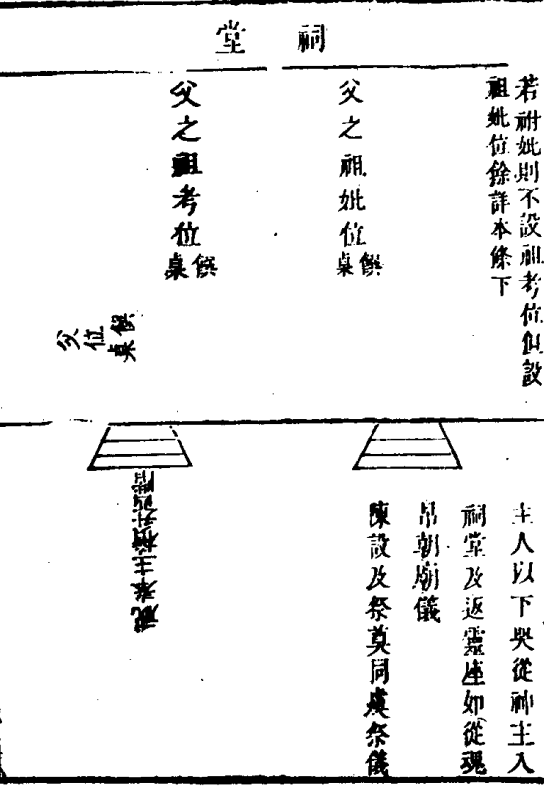 祠堂
若祔妣則不設祖考位但設
祖妣位餘詳本條下
父之祖妣位
饌桌
父之祖考位
饌桌
父位
饌桌
主人以下哭從神主入
祠堂及返靈座如從魂
帛朝廟儀
陳設及祭奠同虞祭儀
祝奉主櫝升西階